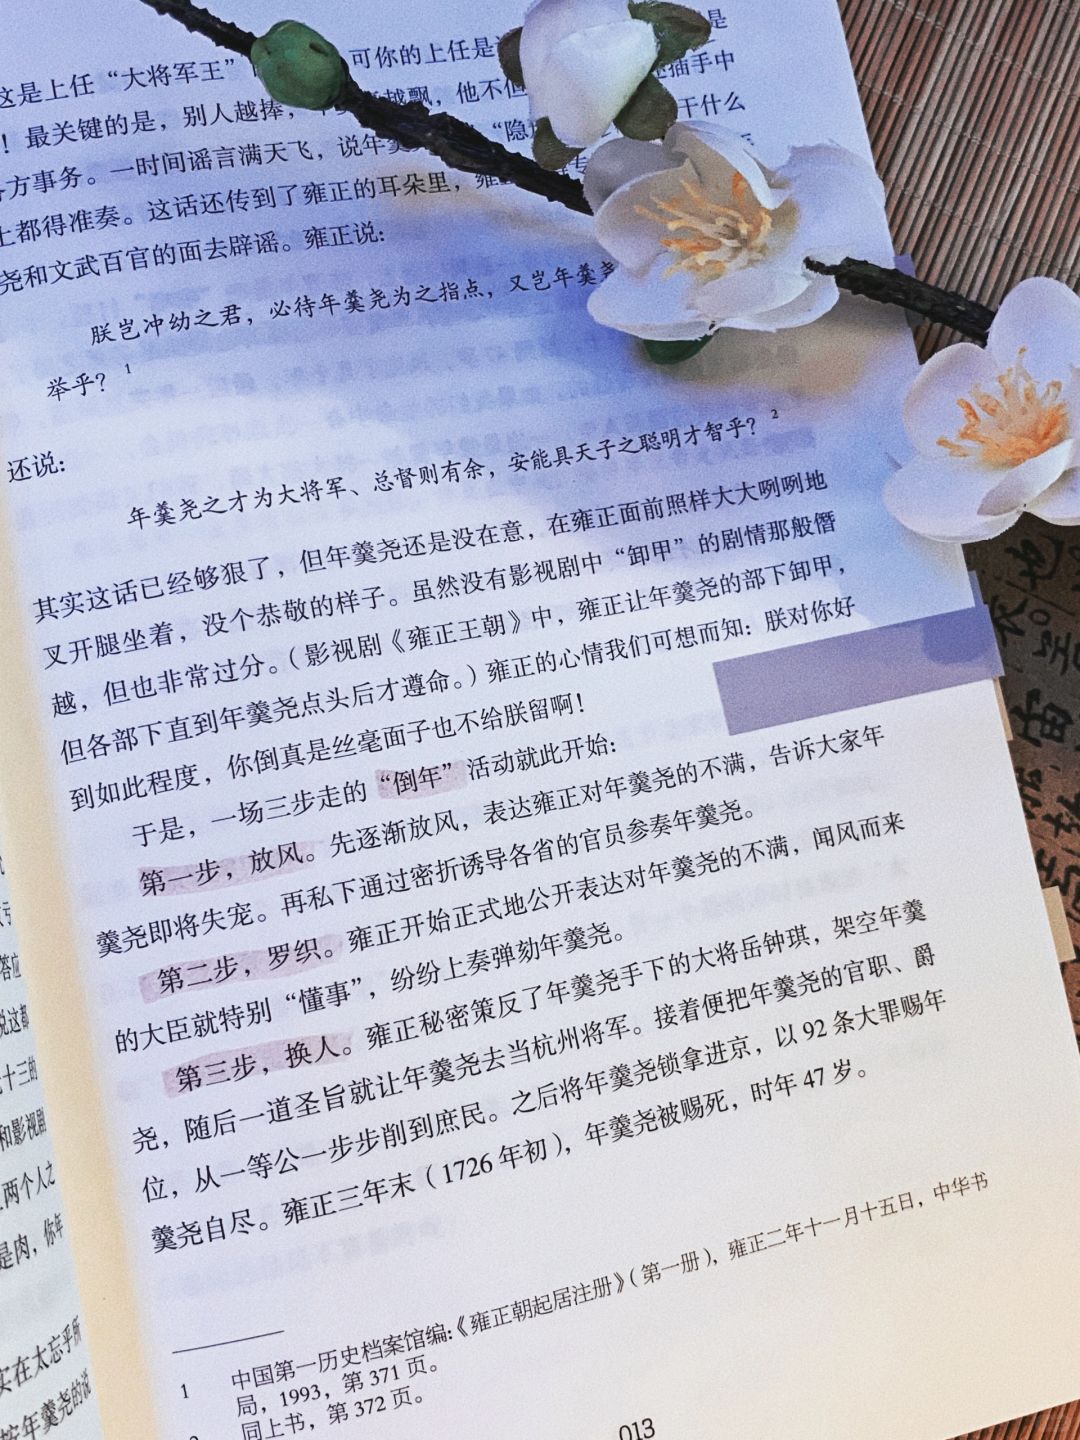 这是上任“大将军王”
可你的上任是
是
！最关键的是，别人越捧，
越飘，他不但
插手中
各方事务。一时间谣言满天飞，说年羹
“隐
干什么
上都得准奏。这话还传到了雍正的耳朵里，雍正
尧和文武百官的面去辟谣。雍正说：
朕岂冲幼之君，必待年羹尧为之指点，又岂年羹尧
举乎？1
还说：
年羹尧之才为大将军、总督则有余，安能具天子之聪明才智乎？2
其实这话已经够狠了，但年羹尧还是没在意，在雍正面前照样大大咧咧地
叉开腿坐着，没个恭敬的样子。虽然没有影视剧中“卸甲”的剧情那般僭
越，但也非常过分。（影视剧《雍正王朝》中，雍正让年羹尧的部下卸甲，
但各部下直到年羹尧点头后才遵命。）雍正的心情我们可想而知：朕对你好
到如此程度，你倒真是丝毫面子也不给朕留啊！
于是，一场三步走的“倒年”活动就此开始：
第一步，放风。先逐渐放风，表达雍正对年羹尧的不满，告诉大家年
羹尧即将失宠。再私下通过密折诱导各省的官员参奏年羹尧。
第二步，罗织。雍正开始正式地公开表达对年羹尧的不满，闻风而来
的大臣就特别“懂事”，纷纷上奏弹劾年羹尧。
第三步，换人。雍正秘密策反了年羹尧手下的大将岳钟琪，架空年羹
尧，随后一道圣旨就让年羹尧去当杭州将军。接着便把年羹尧的官职、爵
位，从一等公一步步削到庶民。之后将年羹尧锁拿进京，以92条大罪赐年
羹尧自尽。雍正三年末（1726年初），年羹尧被赐死，时年47岁。
1 中国第一历史档案馆编：《雍正朝起居注册》（第一册），雍正二年十一月十五日，中华书
局，1993，第371页。
同上书，第372页。
013
答应
说这都
十三的
和影视剧
两个人之
是肉，你年
实在太忘乎所
按年羹尧的说